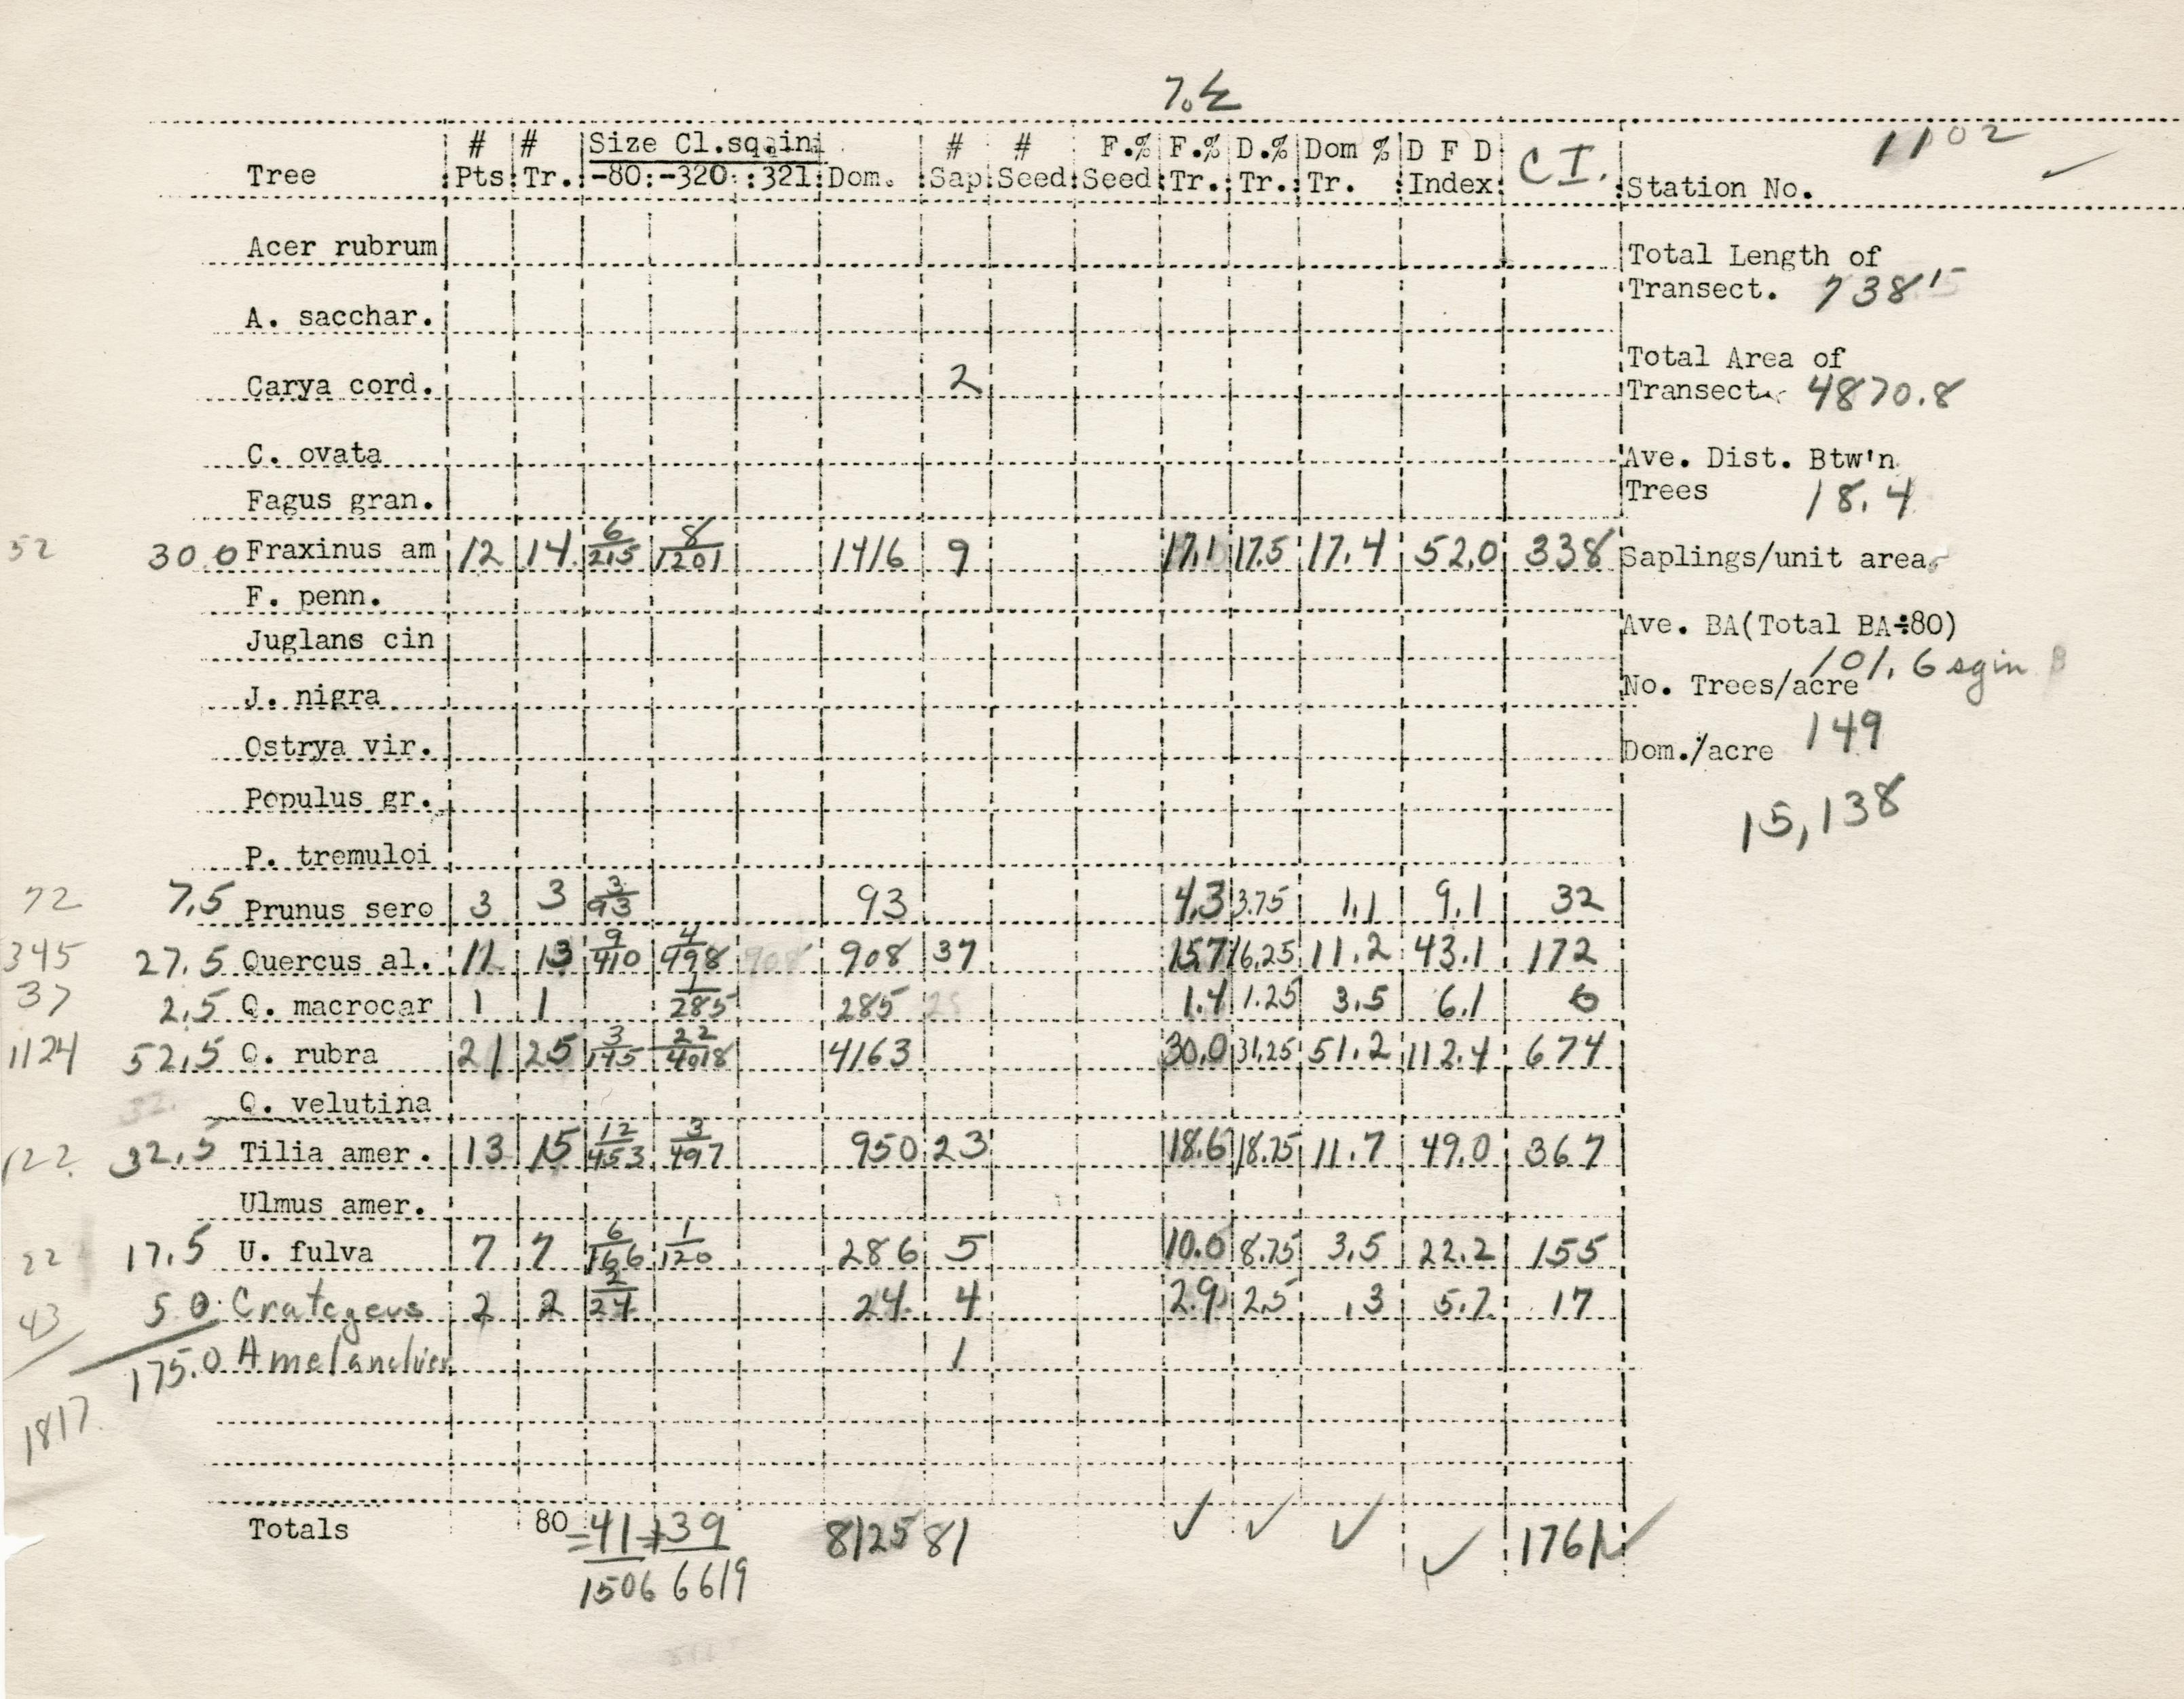 7.5
# # Size Cl.sq.in. # # F.% F.% D.% Dom % D F D C I. 1102
Tree Pts Tr. -80 -320 321 Dom. Sap Seed Seed Tr. Tr. Tr. Index Station No.
Acer rubrum Total Length of
Transect. 738'
A. sacchar.
Total Area of
Carya cord. 2 Transect 4870.8
C. ovata Ave. Dist. Btw'n
Trees 18.4
Fagus gran.
6 8
52 30.0 Fraxinus am 12 14 215 1201 1416 9 17.1 17.5 17.4 52.0 338 Saplings/unit area
F. penn.
Juglans cin Ave. BA(Total BA÷80)
101.6 sqin
J. nigra No. Trees/acre
149
Ostrya vir. Dom./acre
15,138
Populus gr.
P. tremuloi
3
72 7.5 Prunus sero 3 3 93 93 4.3 3.75 1.1 9.1 32
9 4
345 27.5 Quercus al. 11 13 410 498 908 37 15.7 16.25 11.2 43.1 172
1
37 2.5 Q. macrocar 1 1 285 285 1.4 1.25 3.5 6.1 6
3 22
1124 52.5 Q. rubra 21 25 145 4018 4163 30.0 31.25 51.2 112.4 674
Q. velutina
12 3
122 32.5 Tilia amer. 13 15 453 497 950 23 18.6 18.75 11.7 49.0 367
Ulmus amer.
6 1
22 17.5 U. fulva 7 7 166 120 286 5 10.0 8.75 3.5 22.2 155
2
43 5.0 Crategeus 2 2 24 24 4 2.9 2.5 .3 5.7 17
175.0 Amelanchier 1
1817
Totals 80 = 41 + 39 8125 81 1761
1506 6619